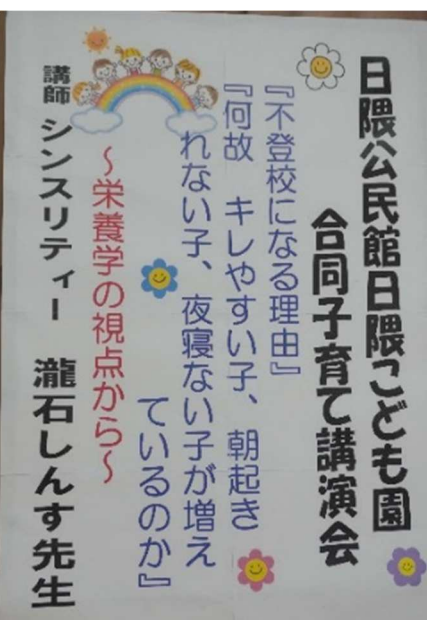 日隈公民館日隈こども園
合同子育て講演会
『不登校になる理由』
『何故 キレやすい子、朝起き
れない子、夜寝ない子が増え
ているのか』
～栄養学の視点から～
講師 シンスリティー 瀧石しんす先生